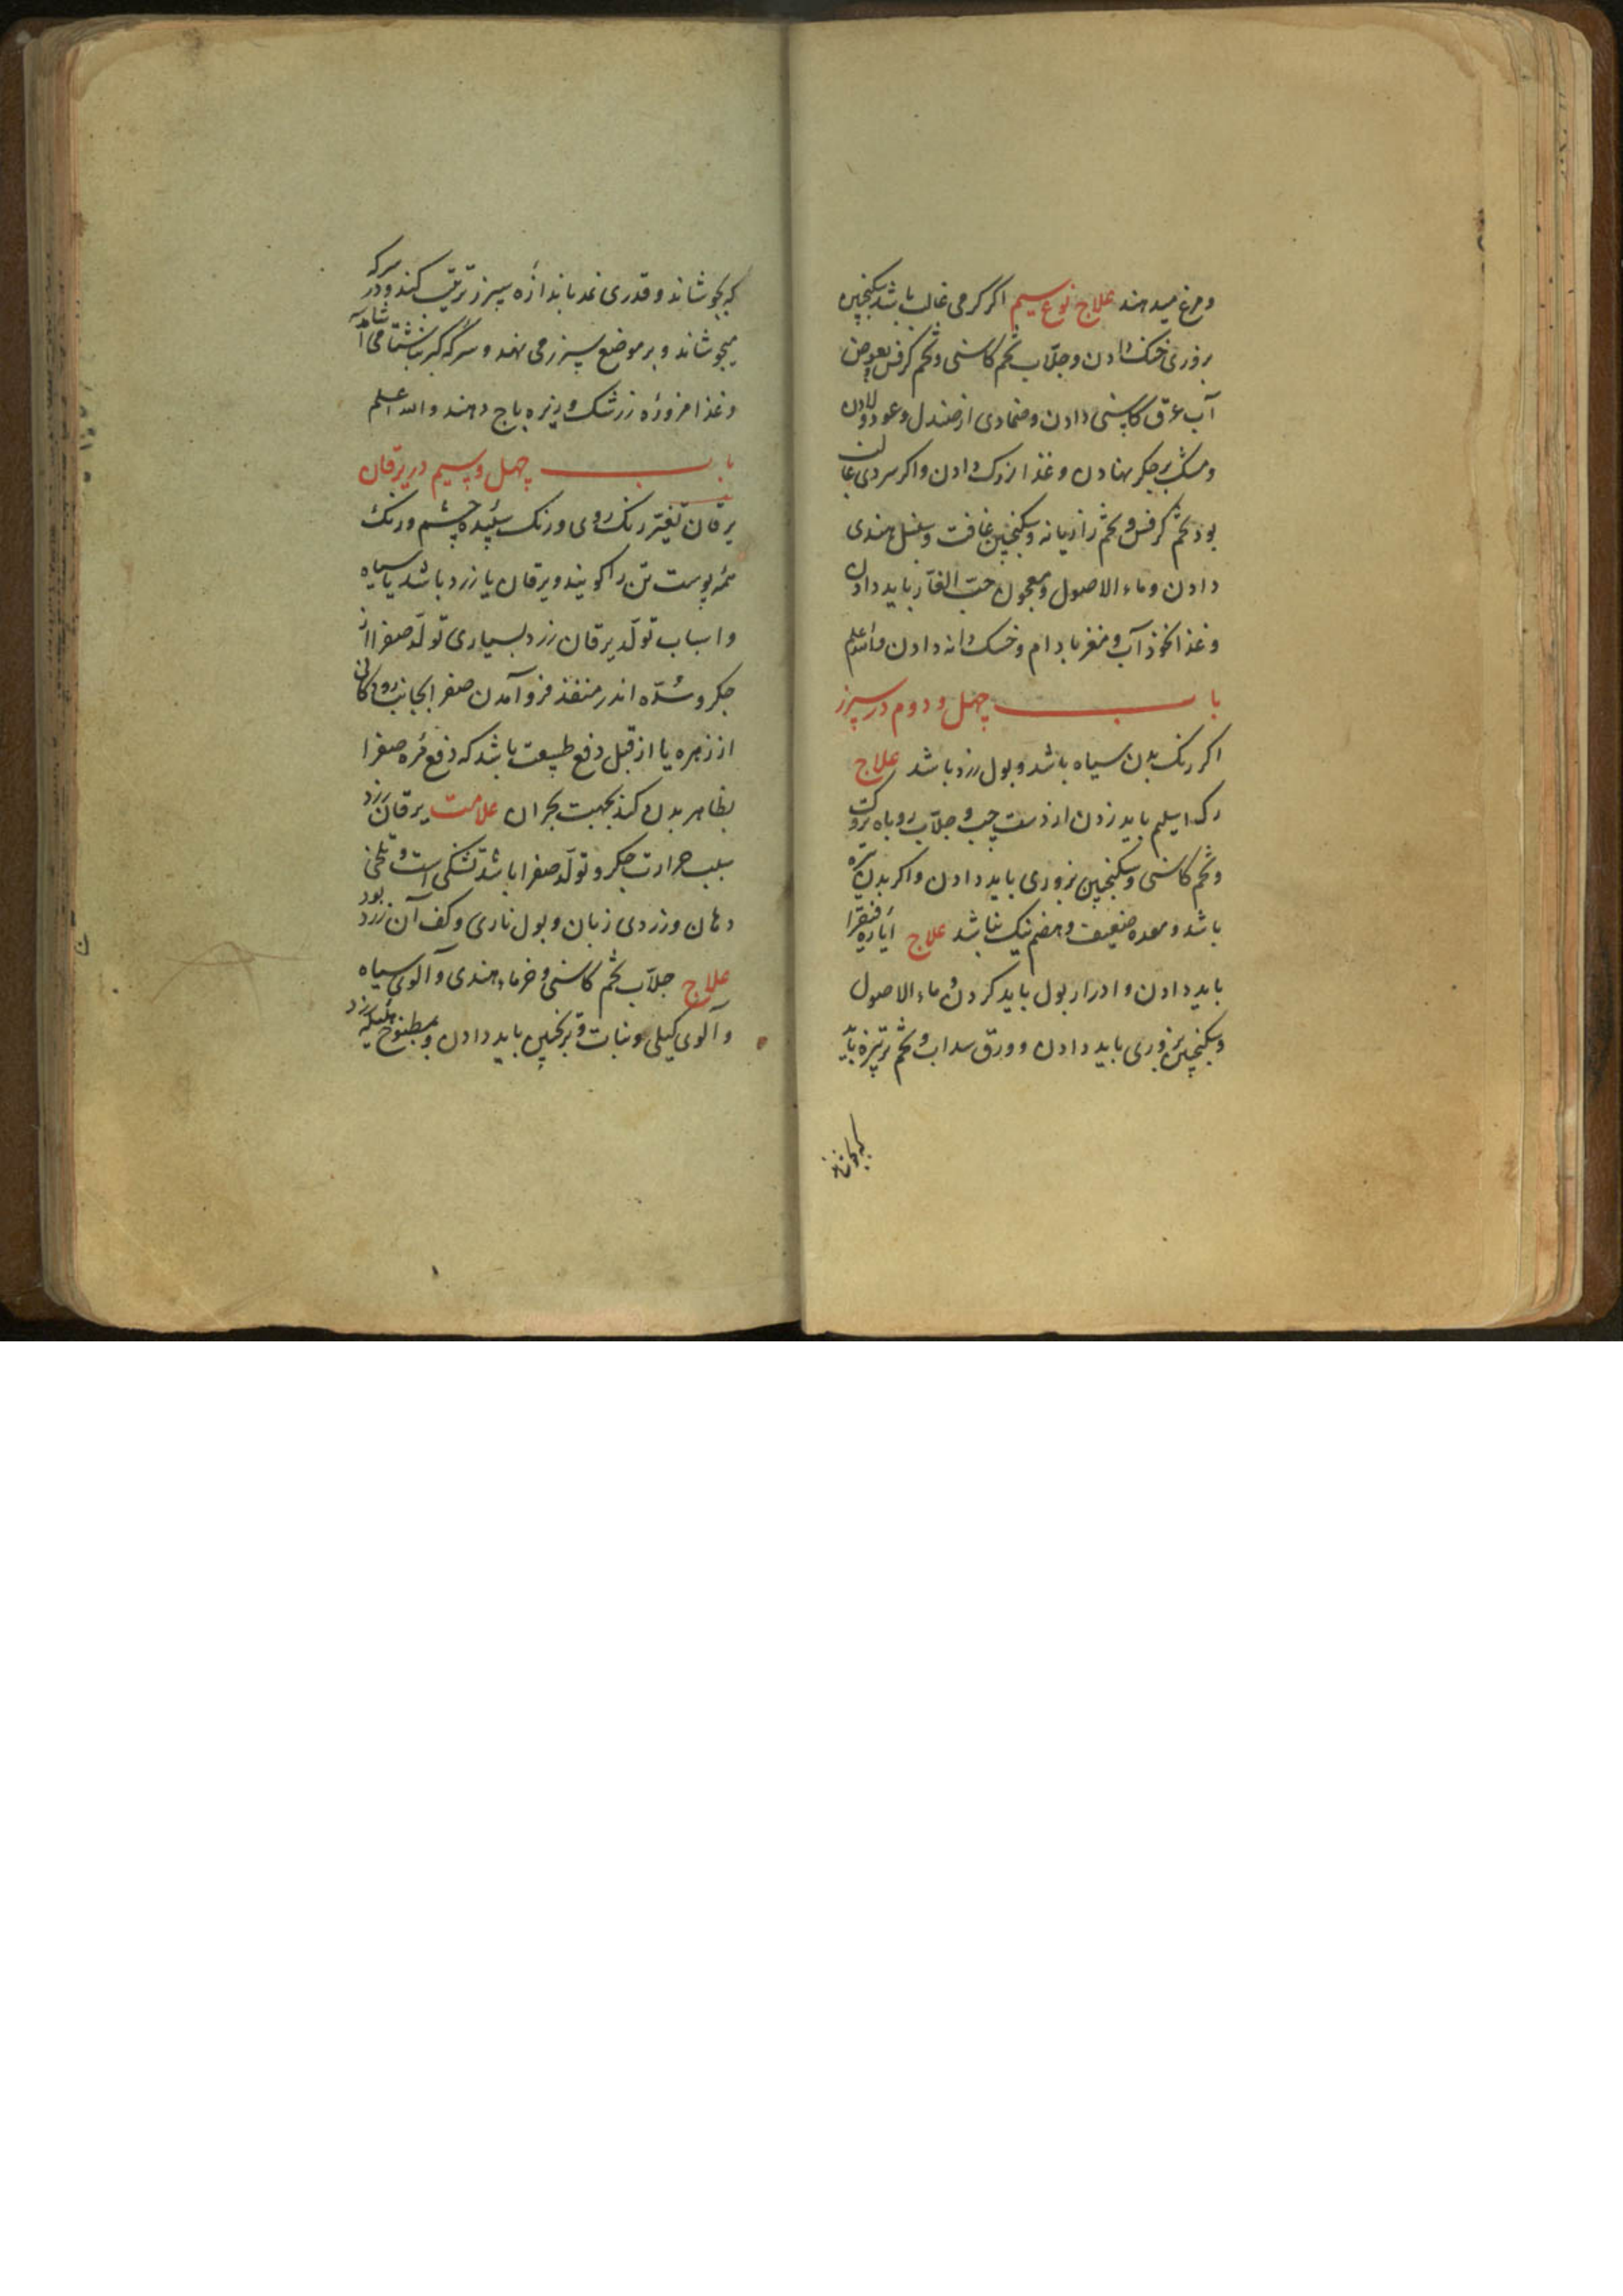 و مرغ میدهند علاج نوع سیم اکر کرمی غالب باشد سکنجبین
بزوری خنک دادن و جلاب تخم کاسنی و تخم کرفس بعوض
آب عرق کاسنی دادن و ضمادی از صندل و عود و لادن
و مشک بر جکر نهادن و غذا مزورک دادن واکر سردی غالب
بود تخم کرفس و تخم رازیانه و سکنجبین غافت و سنبل هندی
دادن وماء الاصول و معجون حب الغار باید دادن
و غذا نخود آب و مغز بادام و خسک دانه دادن والله اعلم
باب چهل و دوم در سپرز
اکر رنک بدن سیاه باشد و بول زرد باشد علاج
رک اسیلم باید زدن از دست چپ و جلاب روباه تروک
و تخم کاسنی و سکنجبین بزوری باید دادن واکر بدن تیره
باشد و معده ضعیف و هضم نیک نباشد علاج ایاره فیقرا
باید دادن و ادرار بول باید کردن وماء الاصول
و سکنجبین بزوری باید دادن و ورق سداب و تخم ترتیزه باید
که بجوشانند
که بجوشاند و قدری نمد باندازه سپرز ترتیب کنند و در سرکه
میجوشاند و بر موضع سپرز می نهند و سرکه کبر ناشتا می آشامند
و غذا مزوره زرشک و زیره باج دهند والله اعلم
باب چهل و سیم در یرقان
یرقان تغیّر رنک روی و رنک سپیده چشم و رنک
همه پوست تن را کویند و یرقان یا زرد باشد یا سیاه
و اسباب تولّد یرقان زرد بسیاری تولّد صفرا از
جکر و سُدّه اندر منفذ فروآمدن صفرا بجانب رودکانی
از زهره یا از قبل دفع طبیعت باشد که دفع مره صفرا
بظاهر بدن کند بجهت بحران علامت یرقان زرد
بسبب حرارت جکر و تولّد صفرا باشد تشنکی است و تلخی
دهان و زردی زبان و بول ناری و کف آن زرد بود
علاج جلاب تخم کاسنی و خرماء هندی و آلوی سیاه
و آلوی کیلی و نبات و ترنجبین باید دادن و مطبوخ هلیله زرد